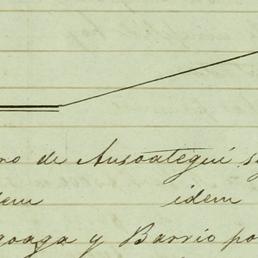 ro de Ansoategui s
dem idem
goaga y Barrio po